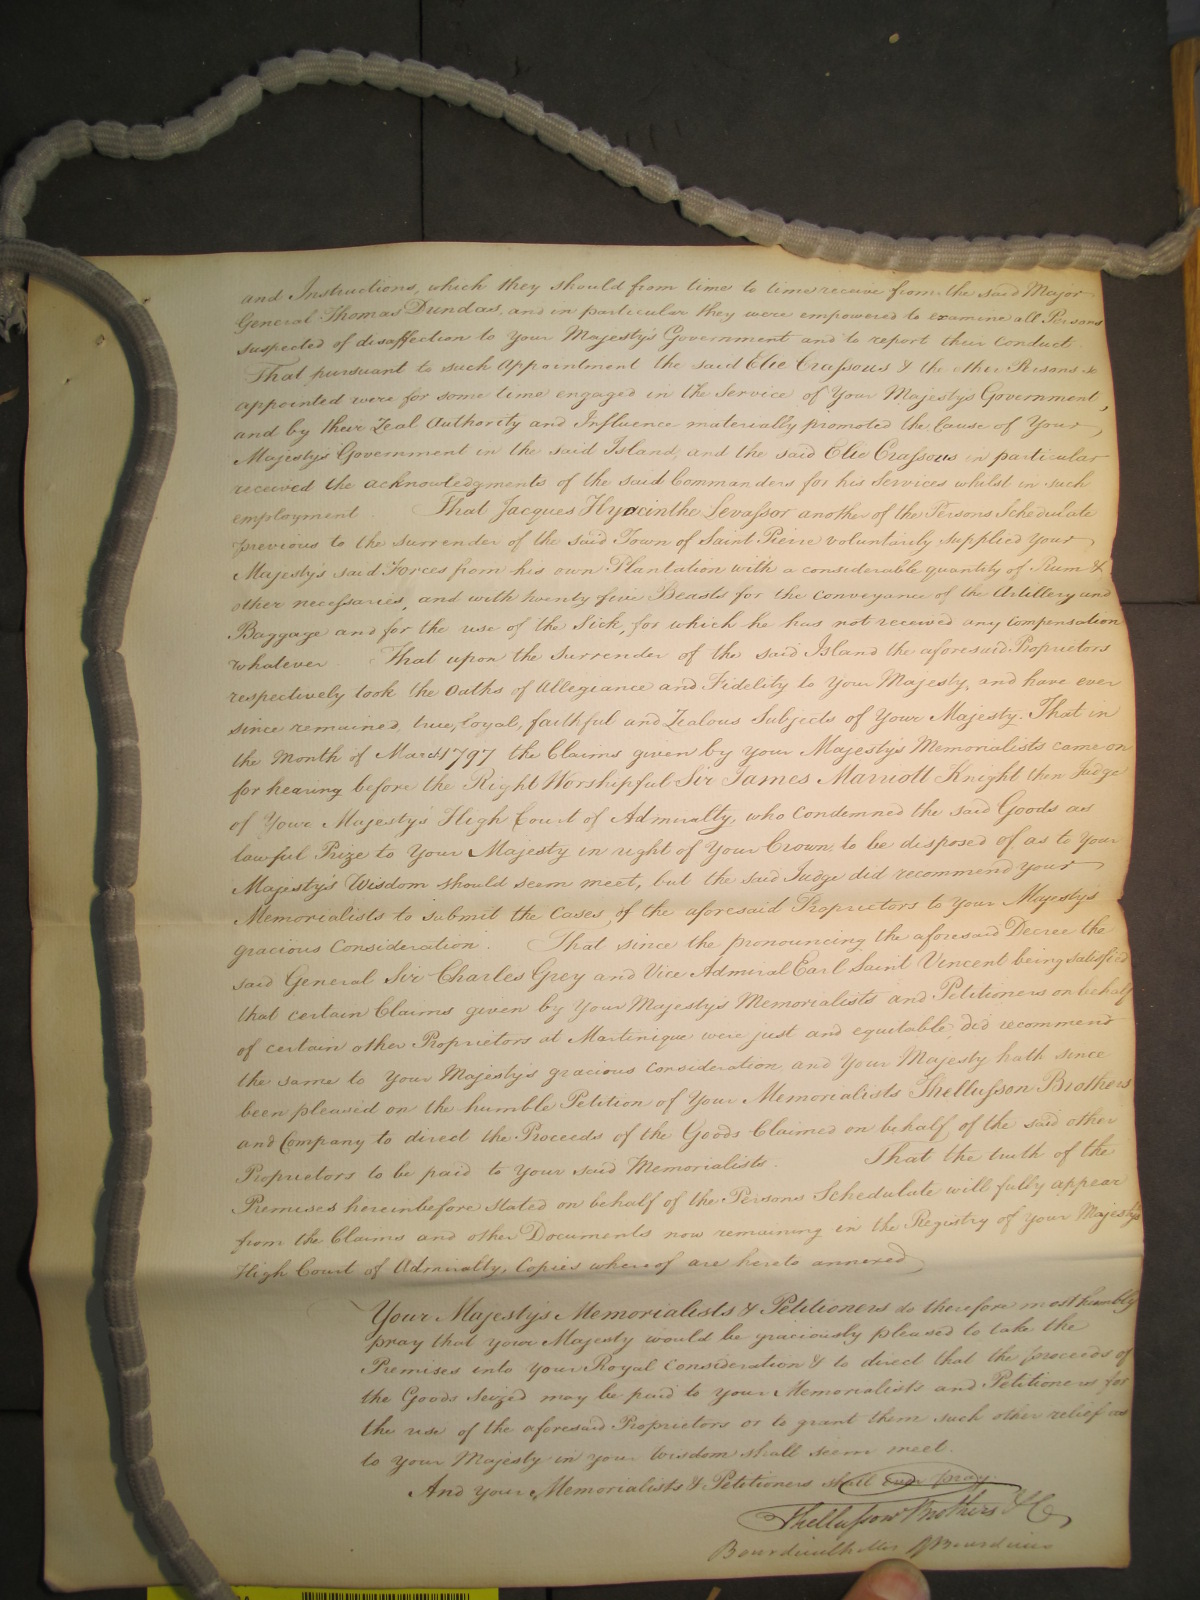 and Instructions, which they should from time to time receive from the said Major
General Thomas Dundas, and in particular they were empowered to examine all Persons
suspected of disaffection to Your Majesty's Government and to report their Conduct.
That pursuant to such Appointment the said Elie Crassous & the other Persons so
appointed were for some time engaged in the Service of Your Majesty's Government,
and by their Zeal Authority and Influence materially promoted the Cause of Your
Majesty's Government in the said Island, and the said Elie Crassous in particular
received the acknowledgments of the said Commanders for his Services whilst in such
employment That Jacques Hyacinthe Levassor another of the Persons Schedulate
previous to the surrender of the said Town of Saint Pierre voluntarily supplied Your
Majesty's said Forces from his own Plantation with a considerable quantity of Rum &
other necessaries, and with twenty five Beasts for the conveyance of the Artillery and
Baggage and for the use of the Sick, for which he has not received any compensation
whatever. That upon the Surrender of the said Island the aforesaid Proprietors
respectively took the Oaths of Allegiance and Fidelity to Your Majesty, and have ever
since remained true, loyal, faithful and Zealous Subjects of Your Majesty. That in
the Month of March 1797 the Claims given by Your Majesty's Memorialists came on
for hearing before the Right Worshipful Sir James Marriott Knight then Judge
of Your Majesty's High Court of Admiralty, who condemned the said Goods as
lawful Prize to Your Majesty in right of Your Crown, to be disposed of as to Your
Majesty's Wisdom should seem meet, but the said Judge did recommend your
Memorialists to submit the Cases, of the aforesaid Proprietors to Your Majesty's
gracious Consideration. That since the pronouncing the aforesaid Decree the
said General Sir Charles Grey and Vice Admiral Earl Saint Vincent being satisfied
that certain Claims given by Your Majesty's Memorialists and Petitioners on behalf
of certain other Proprietors at Martinique were just and equitable did recommend
the same to Your Majesty's gracious consideration, and Your Majesty hath since
been pleased on the humble Petition of Your Memorialists Thellusson Brothers
and Company to direct the Proceeds of the Goods Claimed on behalf of the said other
Proprietors to be paid to Your said Memorialists. That the truth of the
Premises hereinbefore stated on behalf of the Persons Schedulate will fully appear
from the Claims and other Documents now remaining in the Registry of your Majesty's
High Court of Admiralty, Copies whereof are hereto annexed
Your Majesty's Memorialists & Petitioners do therefore most humbly
pray that your Majesty would be graciously pleased to take the
Premises into Your Royal Consideration & to direct that the proceeds of
the Goods Seized may be paid to your Memorialists and Petitioners for
the use of the aforesaid Proprietors or to grant them such other relief as
to your Majesty in your Wisdom shall seem meet.
And your Memorialists & Petitioners shall ever pray
Thellusson Brothers & Co